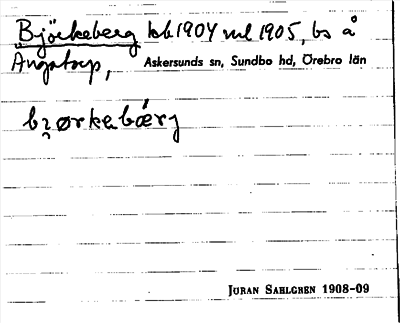 Björkeberg kb 1904 ml 1905, bs å
Ängatorp, Askersunds sn, Sundbo hd, Örebro län
bɂørkebærj
JURAN SAHLGREN 1908-09